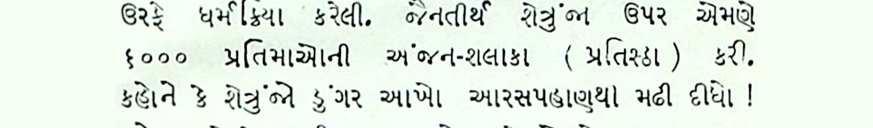 ઉરફે ધર્મક્રિયા કરેલી. જૈનતીર્થ શેત્રુંજા ઉપર એમણે
૬૦૦૦ પ્રતિમાઓની અંજન-શલાકા ( પ્રતિસ્ઠા ) કરી.
કહોને કે શેત્રુંજો ડુંગર આખો આરસપહાણથી મઢી દીધો !